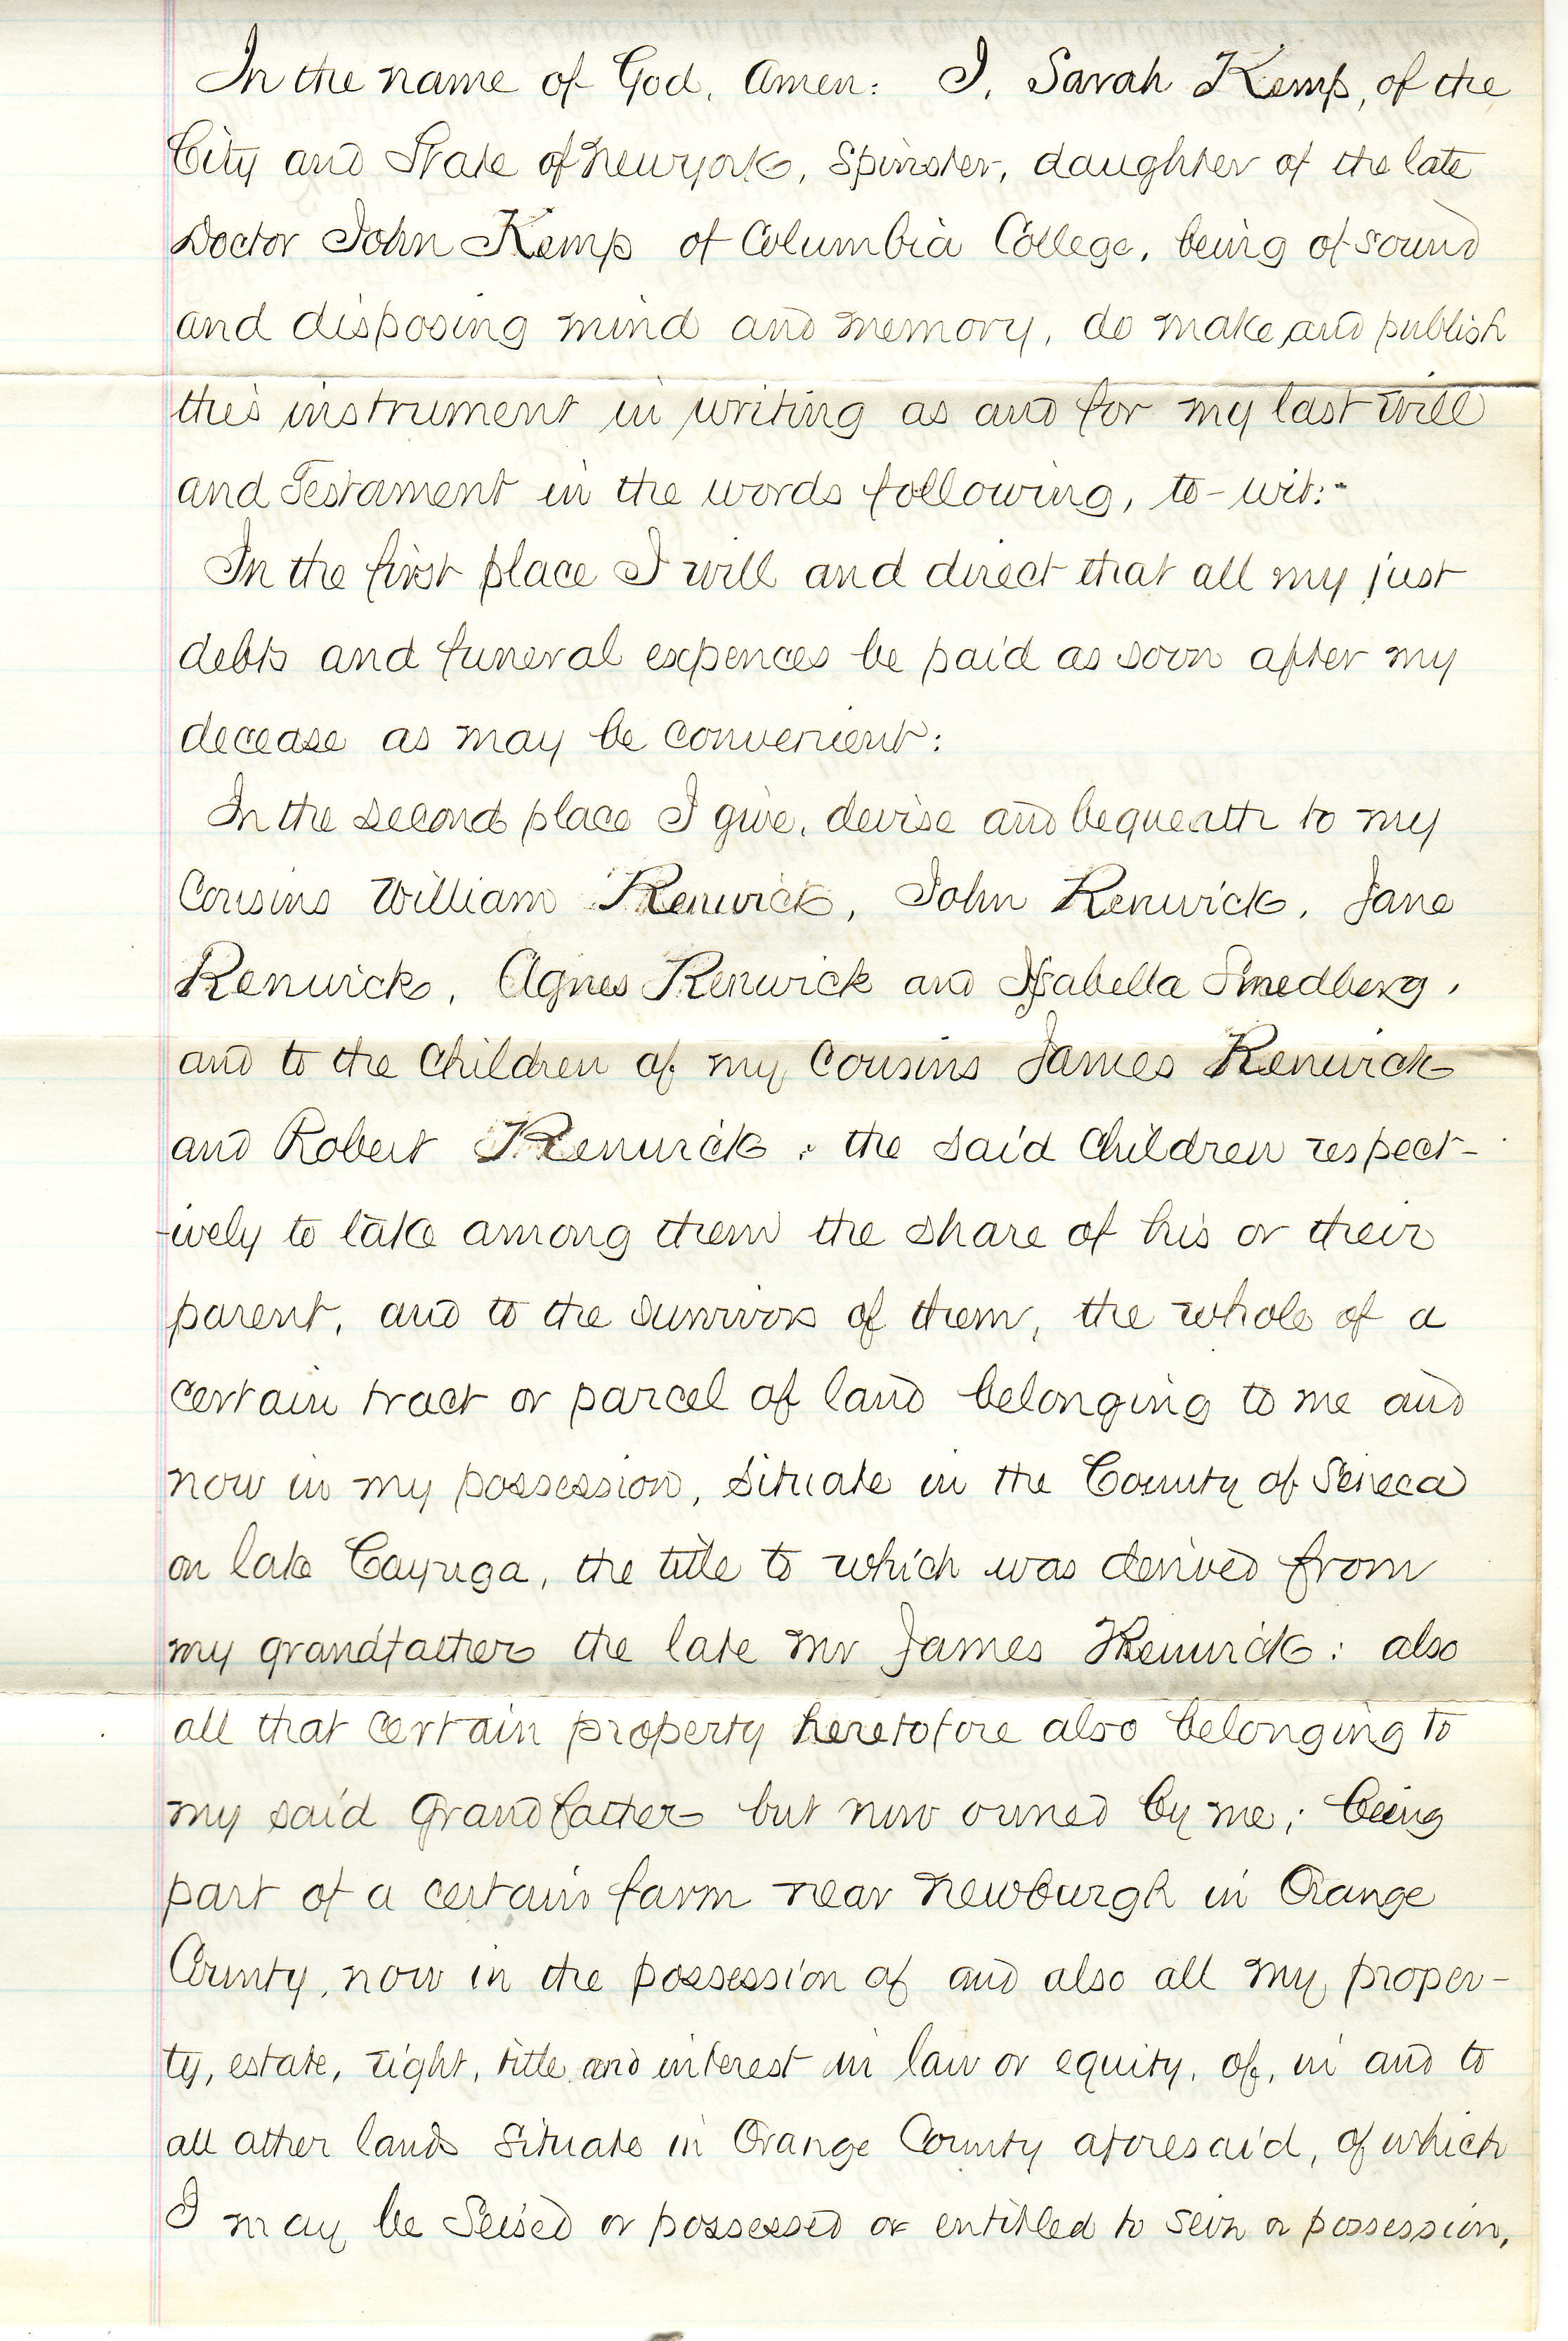 In the name of God, Amen: I, Sarah Kemp, of the
City and State of New york, Spinster, daughter of the late
Doctor John Kemp of Columbia College, being of sound
and disposing mind and memory, do make and publish
this instrument in writing as and for my last will
and Testament in the words following, to-wit:-
In the first place I will and direct that all my just
debts and funeral expences be paid as soon after my
decease as may be convenient:
In the second place I give, devise and bequeath to my
Cousins William Renwick, John Renwick, Jane
Renwick, Agnes Renwick and Isabella Smedberg,
and to the Children of my Cousins James Renwick
and Robert Renwick: the said Children respect-
-ively to take among them the share of his or their
parent, and to the survivors of them, the whole of a
certain tract or parcel of land belonging to me and
now in my possession, situate in the County of Seneca
on lake Cayuga, the title to which was derived from
my grandfather the late Mr James Renwick: also
all that certain property heretofore also belonging to
my said Grandfather but now owned by me; being
part of a certain farm near Newburgh in Orange
County, now in the possession of and also all my proper-
ty, estate, right, title and interest in law or equity, of, in and to
all other lands situate in Orange County aforesaid, of which
I may be Seised or possessed or entitled to seizn or possession,